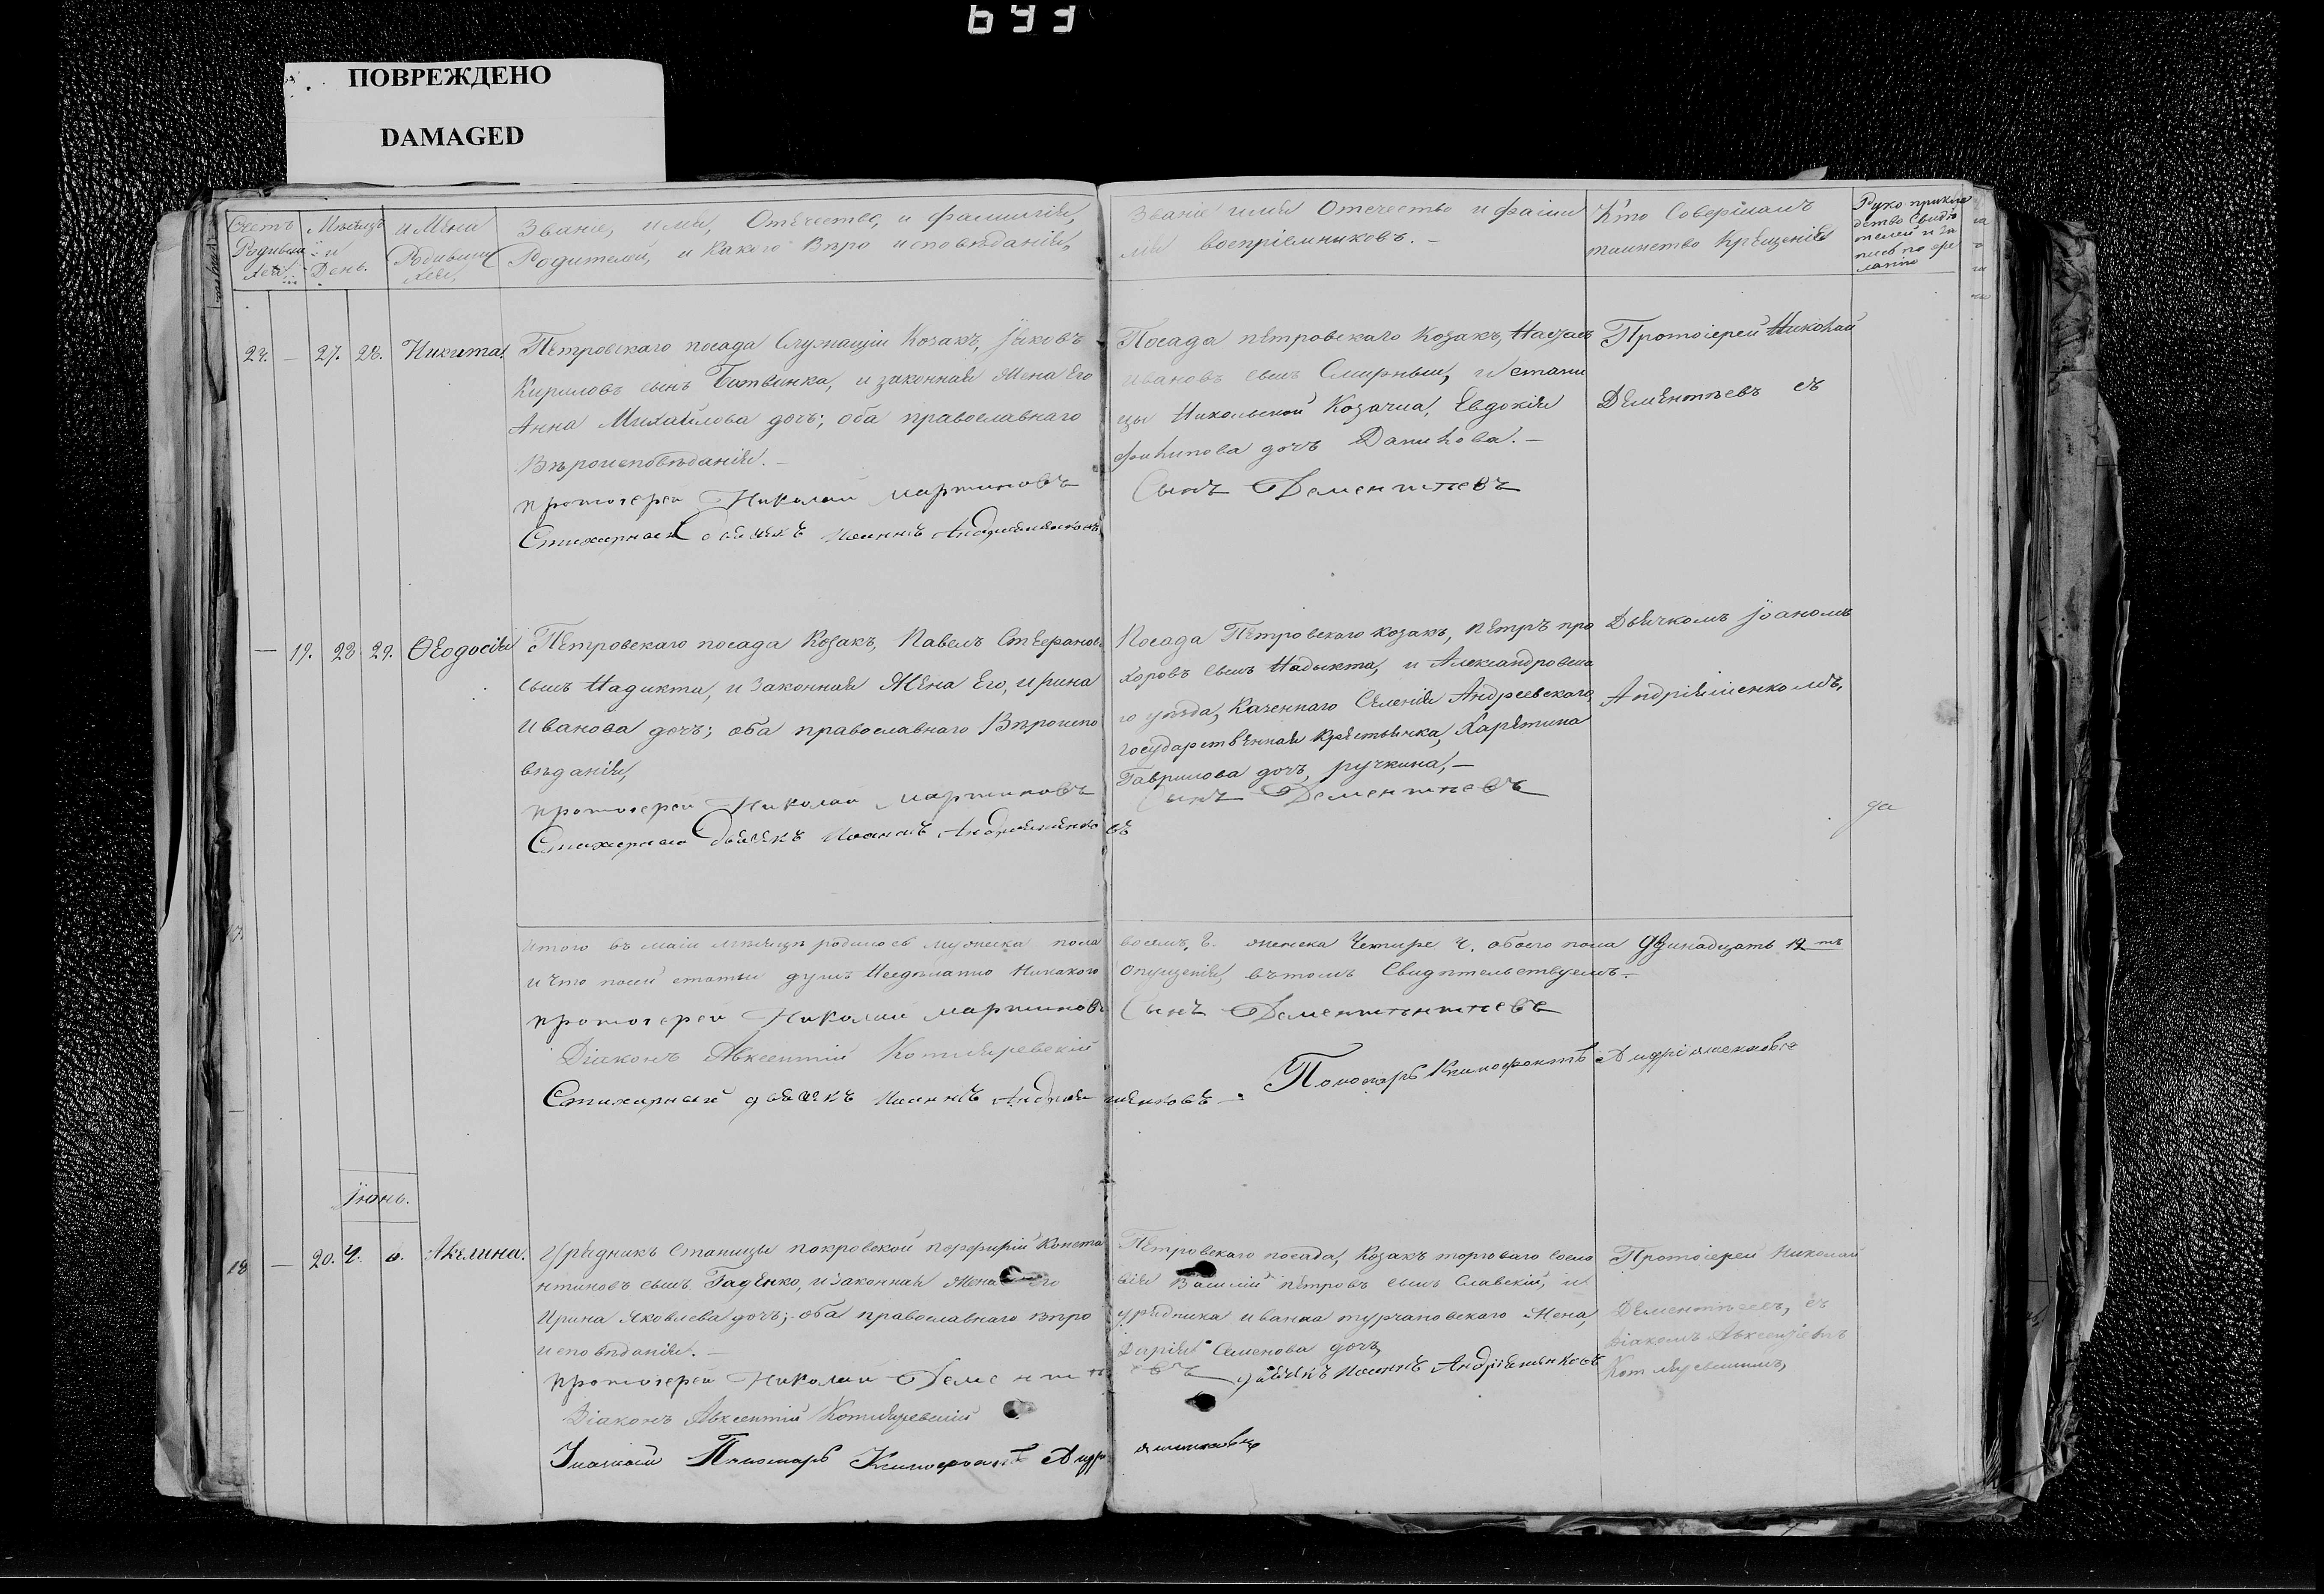 693
ПОВРЕЖДЕНО
DAMAGED
Счетъ Родивши
Мѣсяцъ и День.
имена Родивши
Званіе, имя, Отечество, и фамилія,
Родителей, и какого Вѣро исповѣданія,
Званіе имя Отечество и фами
лія воспріемниковъ. –
Кто Совершалъ
таинство Крещенія
Руко прикла
дство Свидѣ
телей о за
писѣ по же
ланію
22. – 27. 28. Никита.
Петровскаго посада Служащій Козакъ, Яковъ
Кириловъ сынъ Батвинка, и законная Жена Его
Анна Михайлова дочь; оба православнаго
Вѣроисповѣданія. –
протоіерей Николай мартиновъ
Стихарный дьячкъ Иоаннъ Андрияшенковъ
Посада петровскаго Козакъ,
Ивановъ сынъ Смирный, и стани
цы Никольской Козачка, Евдокія
филипова дочь Данилова. –
Сынъ Дементьевъ
Протоіерей Николай
Дементьевъ съ
– 19. 28 29. Өеодосія
Петровскаго посада Козакъ, Павелъ Стефановъ
сынъ Надикта, и законная Жена Его, ирина
Иванова дочь; оба православнаго Вѣроиспо
вѣданія,
протоіерей Николай мартиновъ
Стихарный дьячкъ Иоаннъ Андрияшенковъ
Посада Петровскаго козакъ, Петръ про
хоровъ сынъ Надыкта, и Александровска
го уѣзда, Казеннаго Селенія Андреевскаго,
государственная крестьянка, Харитина
Гаврилова дочь, ручкина, –
Сынъ Дементьевъ
Дьячкомъ Іоаномъ
Андріяшенкомъ,
да
Итого въ маіи мѣсяцѣ родилось мужеска пола
восемь, 8. женска Четыре 4. обоего пола Двинадцать 12 ть
и что посей статьи душъ Несдѣланно Никакого
Опущенія, вътомъ Свидѣтельствуемъ. –
протоіерей Николай мартиновъ
Сынъ Дементьевъ
Діаконъ Авксентій Котляревскій
Стихарный дьячкъ Иоаннъ Андрияшенковъ –
Пономарь Ксинофонтъ Андріяшенковъ
Іюнь.
18 – 20. 4. 6. Акелина.
Урядникъ Станицы покровской порфирій Конста
нтиновъ сынъ Гаденко, и законная Жена Его
Ирина Яковлева дочь; оба православнаго вѣро
исповѣданія. –
протоіерей Николай Дементьевъ
Діаконъ Авксентій Котляревскій
Пономарь Ксинофонтъ Андріяшенковъ
Петровскаго посада, Козакъ торговаго сосло
вія Василій Петровъ сынъ Славскій, и
урядника ивана турчановскаго Жена,
Дарія Семенова дочь,
дьячкъ Иоаннъ Андріяшенковъ
Протоіерей Николай
Дементьевъ, съ
Діакомъ Авксентіемъ
Котляревскимъ,